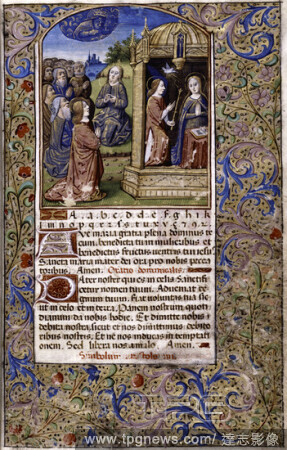 A. a. b. c. d. e. f. g. h. i. k
l m n o p q r s t u x y z
Ave maria gratia plena dominus te
cum. benedicta tu in mulieribus et
benedictus fructus ventris tui iesus
Sancta maria mater dei ora pro nobis pecca
toribus. Amen. Oratio dominicalis.
Pater noster qui es in celis. Sanctifi
cetur nomen tuum. Adveniat re
gnum tuum. Fiat voluntas tua si
cut in celo et in terra. Panem nostrum quoti
dianum da nobis hodie. Et dimitte nobis
debita nostra. sicut et nos dimittimus debito
ribus nostris. Et ne nos inducas in temptati
onem. Sed libera nos a malo. Amen.
www.tpgnews.com/ 達志影像